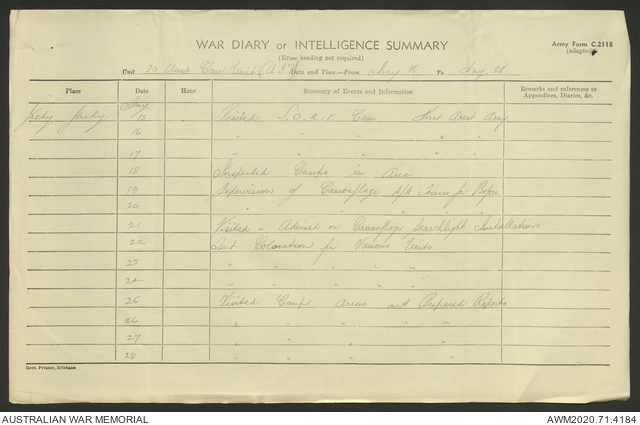 WAR DIARY or INTELLIGENCE SUMMARY
Army Form C.2118
(adapted)
(Erase heading not required)
Unit 20 Aust Cam Unit Date and Time—From May 15 To May 28
Place Date Hour Summary of Events and Information Remarks and references to Appendices, Diaries, &c.
Jacky Jacky May 15 Visited Cam. First Aust Army
16 " " " "
17 " " " "
18 Inspected Camps in Area
19 Supervision of Camouflage Towers for
20 " " " " "
21 Visited & Advised on Camouflage Searchlight Installations
22 Tent Coloration for Various Units
23 " " " "
24 " " " "
25 Visited Camp Areas and Prepared Reports
26 " " " "
27 " " " "
28 " " " "
Govt. Printer, Brisbane
AUSTRALIAN WAR MEMORIAL
AWM2020.71.4184